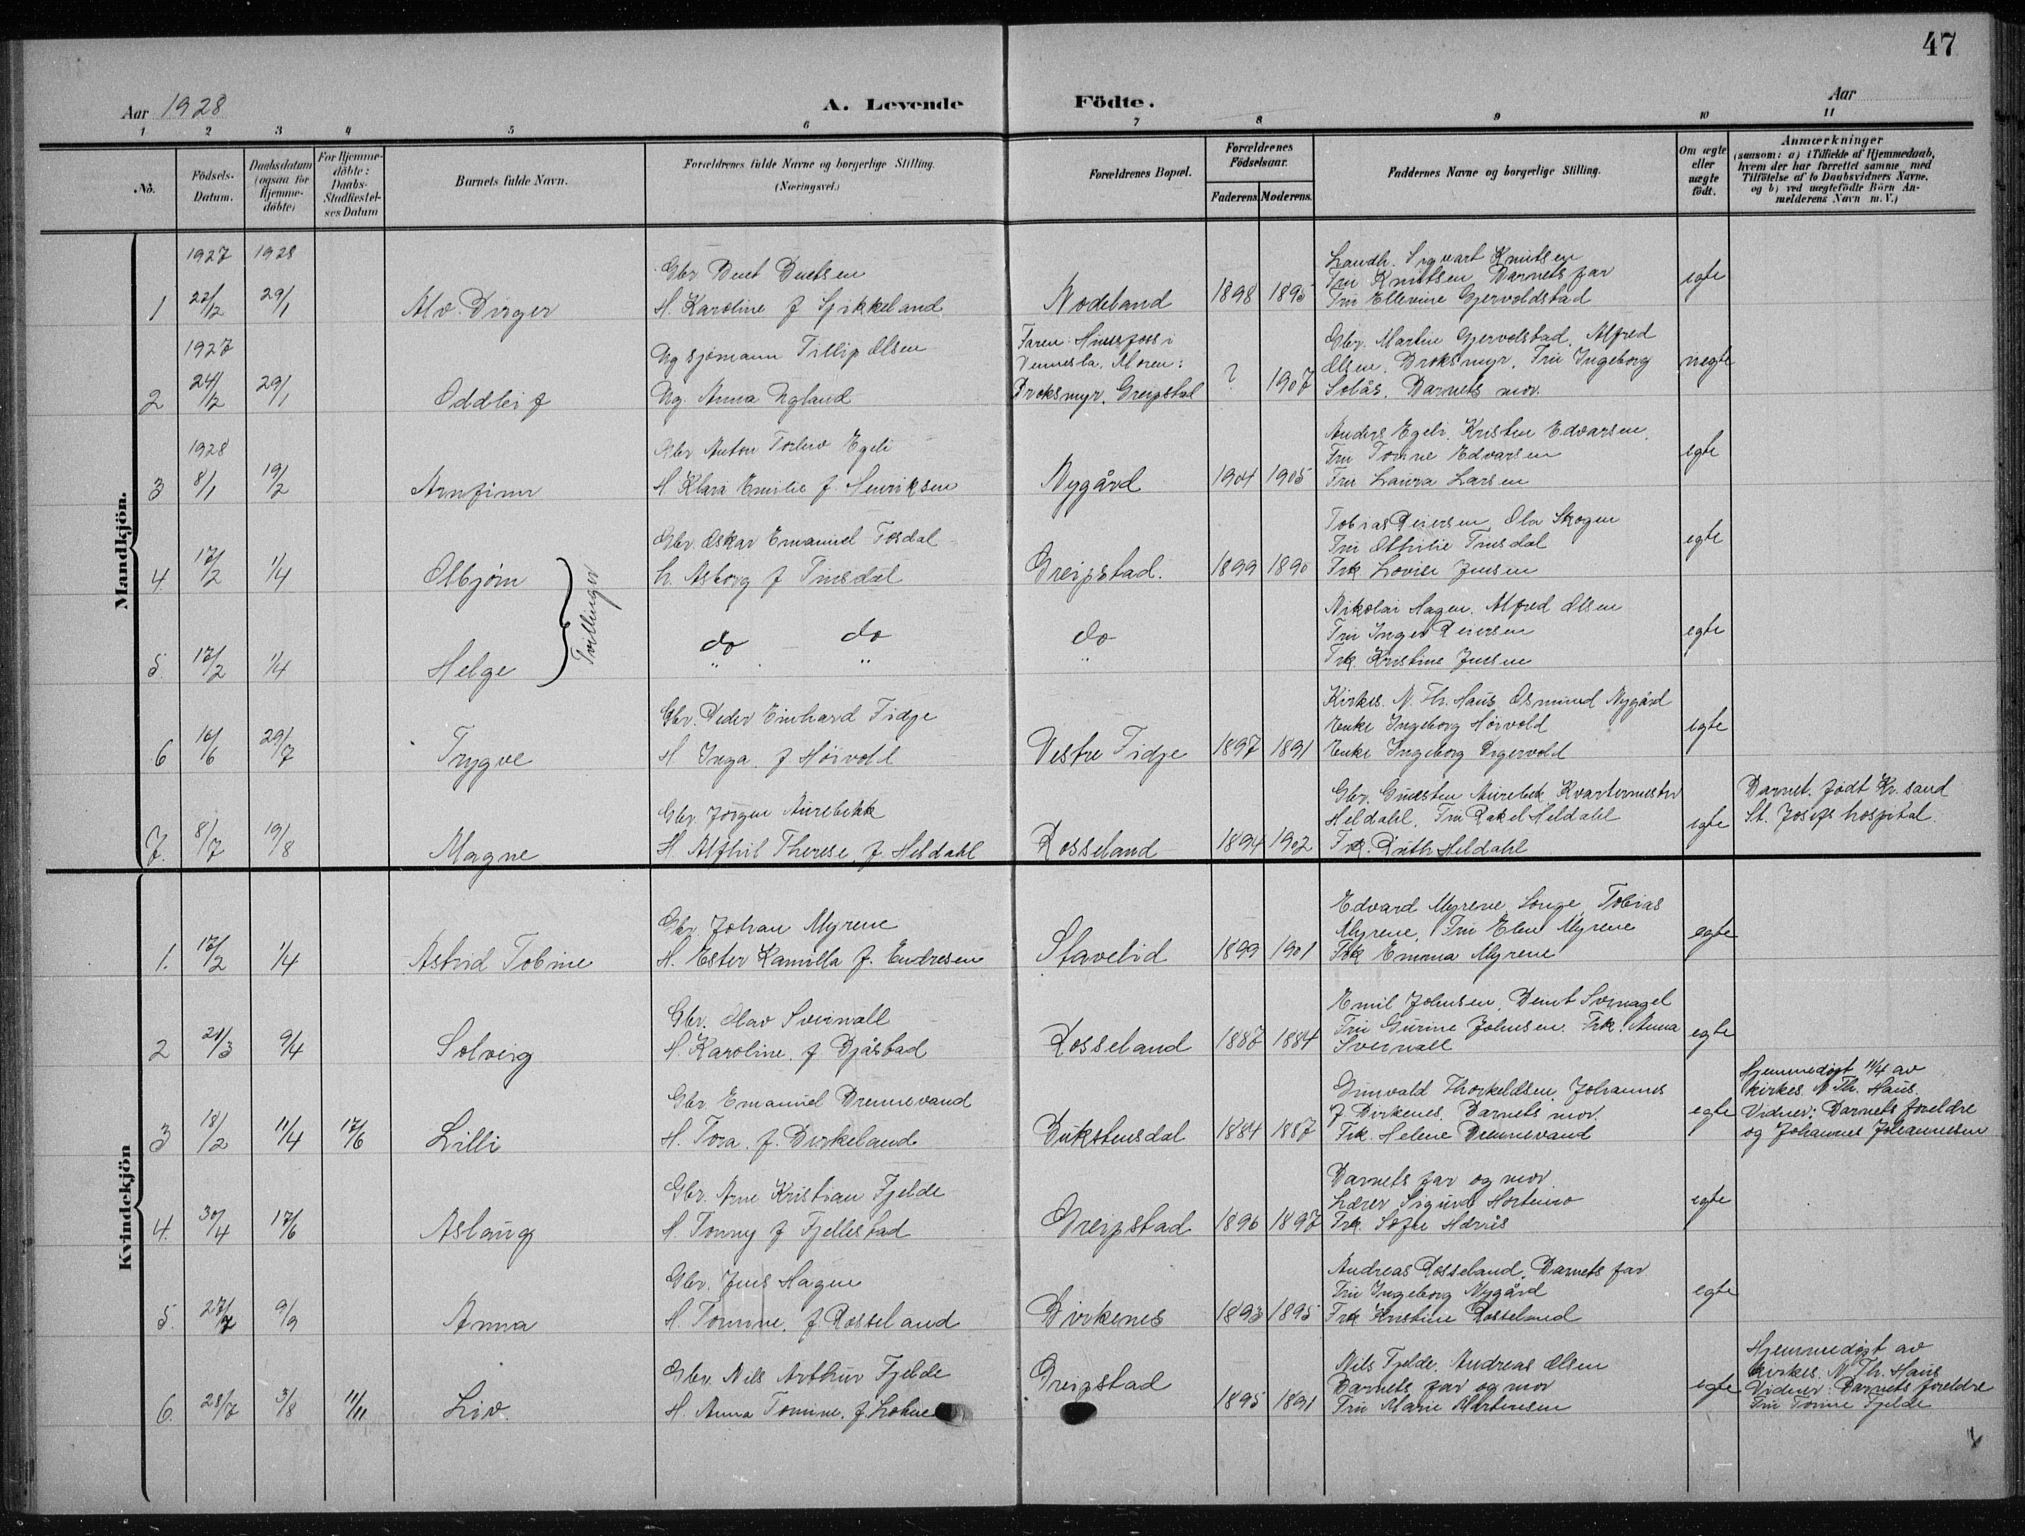 47
Aar 1928
A. Levende
Födte.
Aar
1 2 3 4 5 6 7 8 9 10 11
No.
Födsels-
Datum.
Daabsdatum
(ogsaa for
Hjemme-
döbte)
For Hjemme-
döbte:
Daabs-
Stadfæstel-
ses Datum
Barnets fulde Navn.
Forældrenes fulde Navne og borgerlige Stilling.
(Næringsvei.)
Forældrenes Bopæl.
Forældrenes
Födselsaar.
Faderens Moderens.
Faddernes Navne og borgerlige Stilling.
Om ægte
eller
uægte
födt.
Anmærkninger
(saasom: a) i Tilfælde af Hjemmedaab,
hvem der har forrettet samme med
Tilföielse af to Daabsvidners Navne,
og b) ved uægtefödte Börn An-
melderens Navn m. V.)
Mandkjön.
1927 1928
Gbr Bent Bentsen
Landh. Sigvart Knutsen
Fru Knutsen Barnets far
1 22/12 29/1 Alv. Birger H. Karoline f Spikkeland Nodeland 1898 1895 Fru Ellevine Gjervoldstad egte
1927
Ug sjømann Fillip Olsen
Faren: Hunsfoss i
Vennesla. Moren:
Gbr. Martin Gjervolstad. Alfred
Olsen, Broksmyr. Fru Ingeborg
2 24/2 29/1 Oddleif Ug. Anna Ugland Broksmyr. Greipstad ? 1907 Solås. Barnets mor. uegte
1928
Gbr Anton Torleiv Egeli
Anders Egeli. Kristen Edvarsen.
Fru Tomine Edvarsen
3 8/1 19/2 Arnfinn H Klara Emilie f. Henriksen Nygård 1904 1905 Fru Laura Larsen egte
Gbr. Oskar Emanuel Fosdal
Tobias Reiersen, Ola Skogen
Fru Othilie Tinsdal
4. 17/2 1/4 Olbjørn h. Asborg f Tinsdal Greipstad. 1899 1890 Frk Lovise Jensen egte
Tvillinger
Nikolai Hagen. Alfred Olsen
Fru Inger Reiersen
5. 17/2 1/4 Helge do do do Frk. Kristine Jensen egte
Gbr. Peder Einhard Fidje
Kirkes. N. Th. Haus, Osmund Nygård
Enke Ingeborg Hørvold
6 16/6 29/7 Trygve H Inga. f Hørvold Vestre Fidje 1897 1891 Enke Ingeborg egte
Gbr. Jørgen Aurebekk
Gbr. Aurebek Kvartermester
Heldahl. Fru Rakel Heldahl
7. 8/7 19/8 Magne H Alfhil Therese f Heldahl Rosseland 1894 1902 Frk. Ruth Heldahl egte
Barnet født Kr. sand
St. Josefs hospital.
Kvindekjön
Gbr Johan Myrene
Edvard Myrene, Songe, Tobias
Myrene, Fru Elen Myrene
1. 17/2 1/4 Astrid Tobine H. Ester Kamilla f. Endresen Stavelid 1899 1901 Frk Emma Myrene egte
Gbr. Olav Sveinall
Emil Johnsen, Bent
Fru Gurine Johnsen. Frk. Anna
2 21/3 9/4 Solveig H. Karoline. f Bjåstad Rosseland 1887 1884 Sveinall egte
Gbr Emanuel Drennevand
Grunvald Thorkeldsen, Johannes
f Birkenes. Barnets mor
3 18/2 11/4 17/6 Lilli H. Tora. f. Birkeland Bukstensdal 1884 1887 Frk. Helene Drennevand egte
Hjemmedøpt 11/4 av
kirkes. N. Th. Haus.
Vidner: Barnets foreldre
og Johannes Johannesen
Gbr. Arne Kristian Fjelde
Barnets far og mor.
Lærer Sigurd Hortemo
4. 30/4 17/6 Aslaug H. Tonny f Fjellestad Greipstad 1896 1897 Frk. Sofie egte
Gbr. Jens Hagen
Andreas Rosseland. Barnets far
Fru Ingeborg Nygård
5. 27/7 9/9 Anna H. Tomine. f. Rosseland Birkenes 1893 1895 Frk Kristine Rosseland egte
Gbr. Nils Arthur Fjelde
Nils Fjelde. Andreas Olsen
Barnets far og mor
6. 28/7 3/8 11/11 Liv. H. Anna Tomine. f. Greipstad 1895 1891 Fru Marie Mortensen egte
Hjemmedøpt av
kirkes. N. Th. Haus
Vidner: Barnets foreldre
Fru Tomine Fjelde